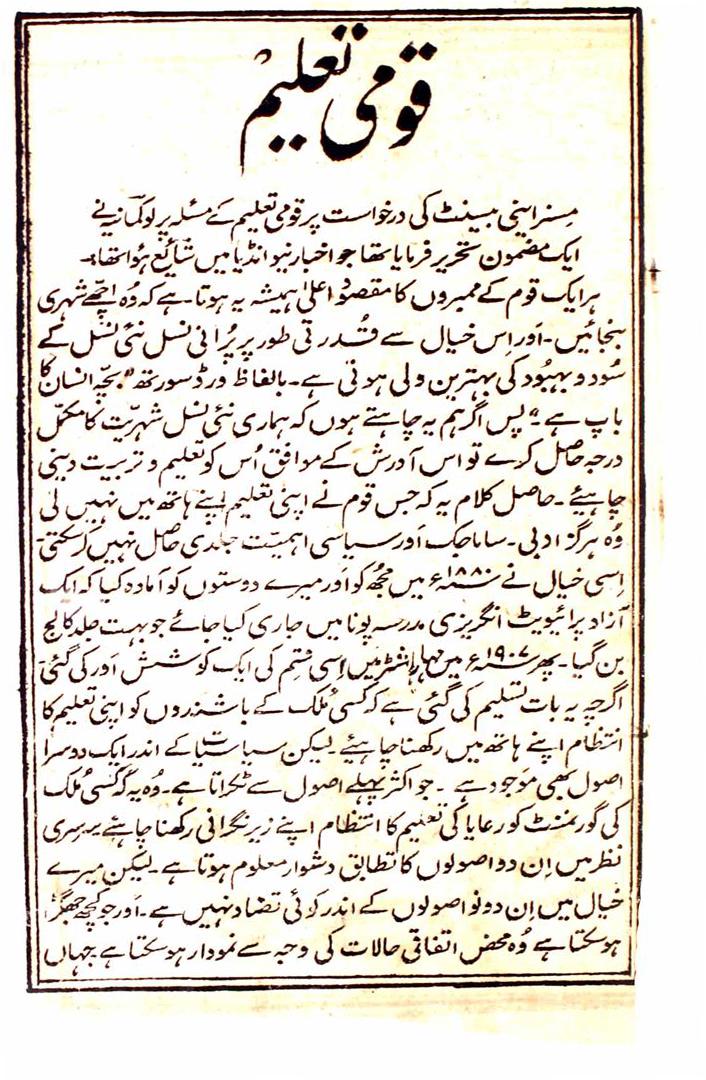 قومی تعلیم
مسز اینی بیسنٹ کی درخواست پر قومی تعلیم کے مسئلہ پر لوکمانیہ نے
ایک مضمون تحریر فرمایا تھا جو اخبار نیو انڈیا میں شائع ہؤا تھا :۔
ہر ایک قوم کے ممبروں کا مقصودِ اعلیٰ ہمیشہ یہ ہوتا ہے کہ وُہ اچھے شہری
بنجائیں۔ اَور اِس خیال سے قُدرتی طور پر پُرانی نسل نئی نسل کے
سُود و بہبُود کی بہترین ولی ہوتی ہے۔ بالفاظ ورڈسورتھ "بچہ انسان کا
باپ ہے" پس اگر ہم یہ چاہتے ہوں کہ ہماری نئی نسل شہریّت کا مکمّل
درجہ حاصل کرے تو اس آدرش کے موافق اُس کو تعلیم و تربیت دینی
چاہیئے۔ حاصل کلام یہ کہ جس قوم نے اپنی تعلیم اپنے ہاتھ میں نہیں لی
وُہ ہرگز ادبی۔ ساماجک اَور سیاسی اہمیّت جلدی حاصل نہیں کرسکتی۔
اِسی خیال نے ۱۸۸۰ء میں مُجھ کو اَور میرے دوستوں کو آمادہ کیا کہ ایک
آزاد پرائیویٹ انگریزی مدرسہ پونا میں جاری کیا جائے جو بہت جلد کالج
بن گیا۔ پھر ۱۹۰۷ء میں مہاراشٹر میں اِسی قِسم کی ایک کوشش اَور کی گئی۔
اگرچہ یہ بات تسلیم کی گئی ہے کہ کسی مُلک کے باشندوں کو اپنی تعلیم کا
انتظام اپنے ہاتھ میں رکھنا چاہیئے۔ لیکن سیاسیات کے اندر ایک دوسرا
اصول بھی موَجود ہے۔ جو اکثر پہلے اصول سے ٹکراتا ہے۔ وُہ یہ کہ کسی مُلک
کی گورنمنٹ کو رعایا کی تعلیم کا انتظام اپنے زیر نگرانی رکھنا چاہئے۔ سرسری
نظر میں اِن دو اصولوں کا تطابق دشوار معلوم ہوتا ہے۔ لیکن میرے
خیال میں اِن دونو اصولوں کے اندر کوئی تضاد نہیں ہے۔ اَور جو کچھ جھگڑا
ہوسکتا ہے وُہ محض اتفاقی حالات کی وجہ سے نمودار ہوسکتا ہے۔ جہاں